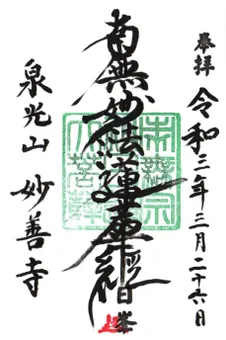 奉拝
令和三年三月二十六日
南無妙法蓮華経
泉光山 妙善寺